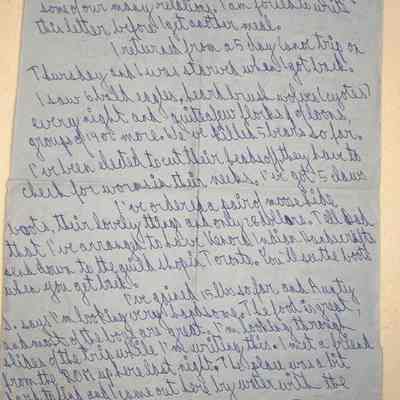 some of our many relations, I am forced to write
this letter before I get another meal.
I returned from a 5 day canoe trip on
Thursday and I was starved when I got back.
I saw bald eagles, heard brush wolves (coyotes)
every night and quite a few flocks of loons,
groups of 40 or more. We've killed 5 bears so far.
I've been elected to cut their heads off they have to
check for worms in their necks. I've got 5 claws
I've ordered a pair of moosehide
boots, their lovely things and only a dollars. I'll
that I've arranged to have Indian Handicrafts
send down to the guild shop in Toronto. You'll see the boots
when you get back.
I've gained 15 lbs so far and Aunty
S. says I'm looking very handsome. The food is great,
and most of the boys are great. I'm looking through
slides of the trip while I'm writing this. I met a friend
from the ROM up here last night. The place was a bit
and I came out here by water with the